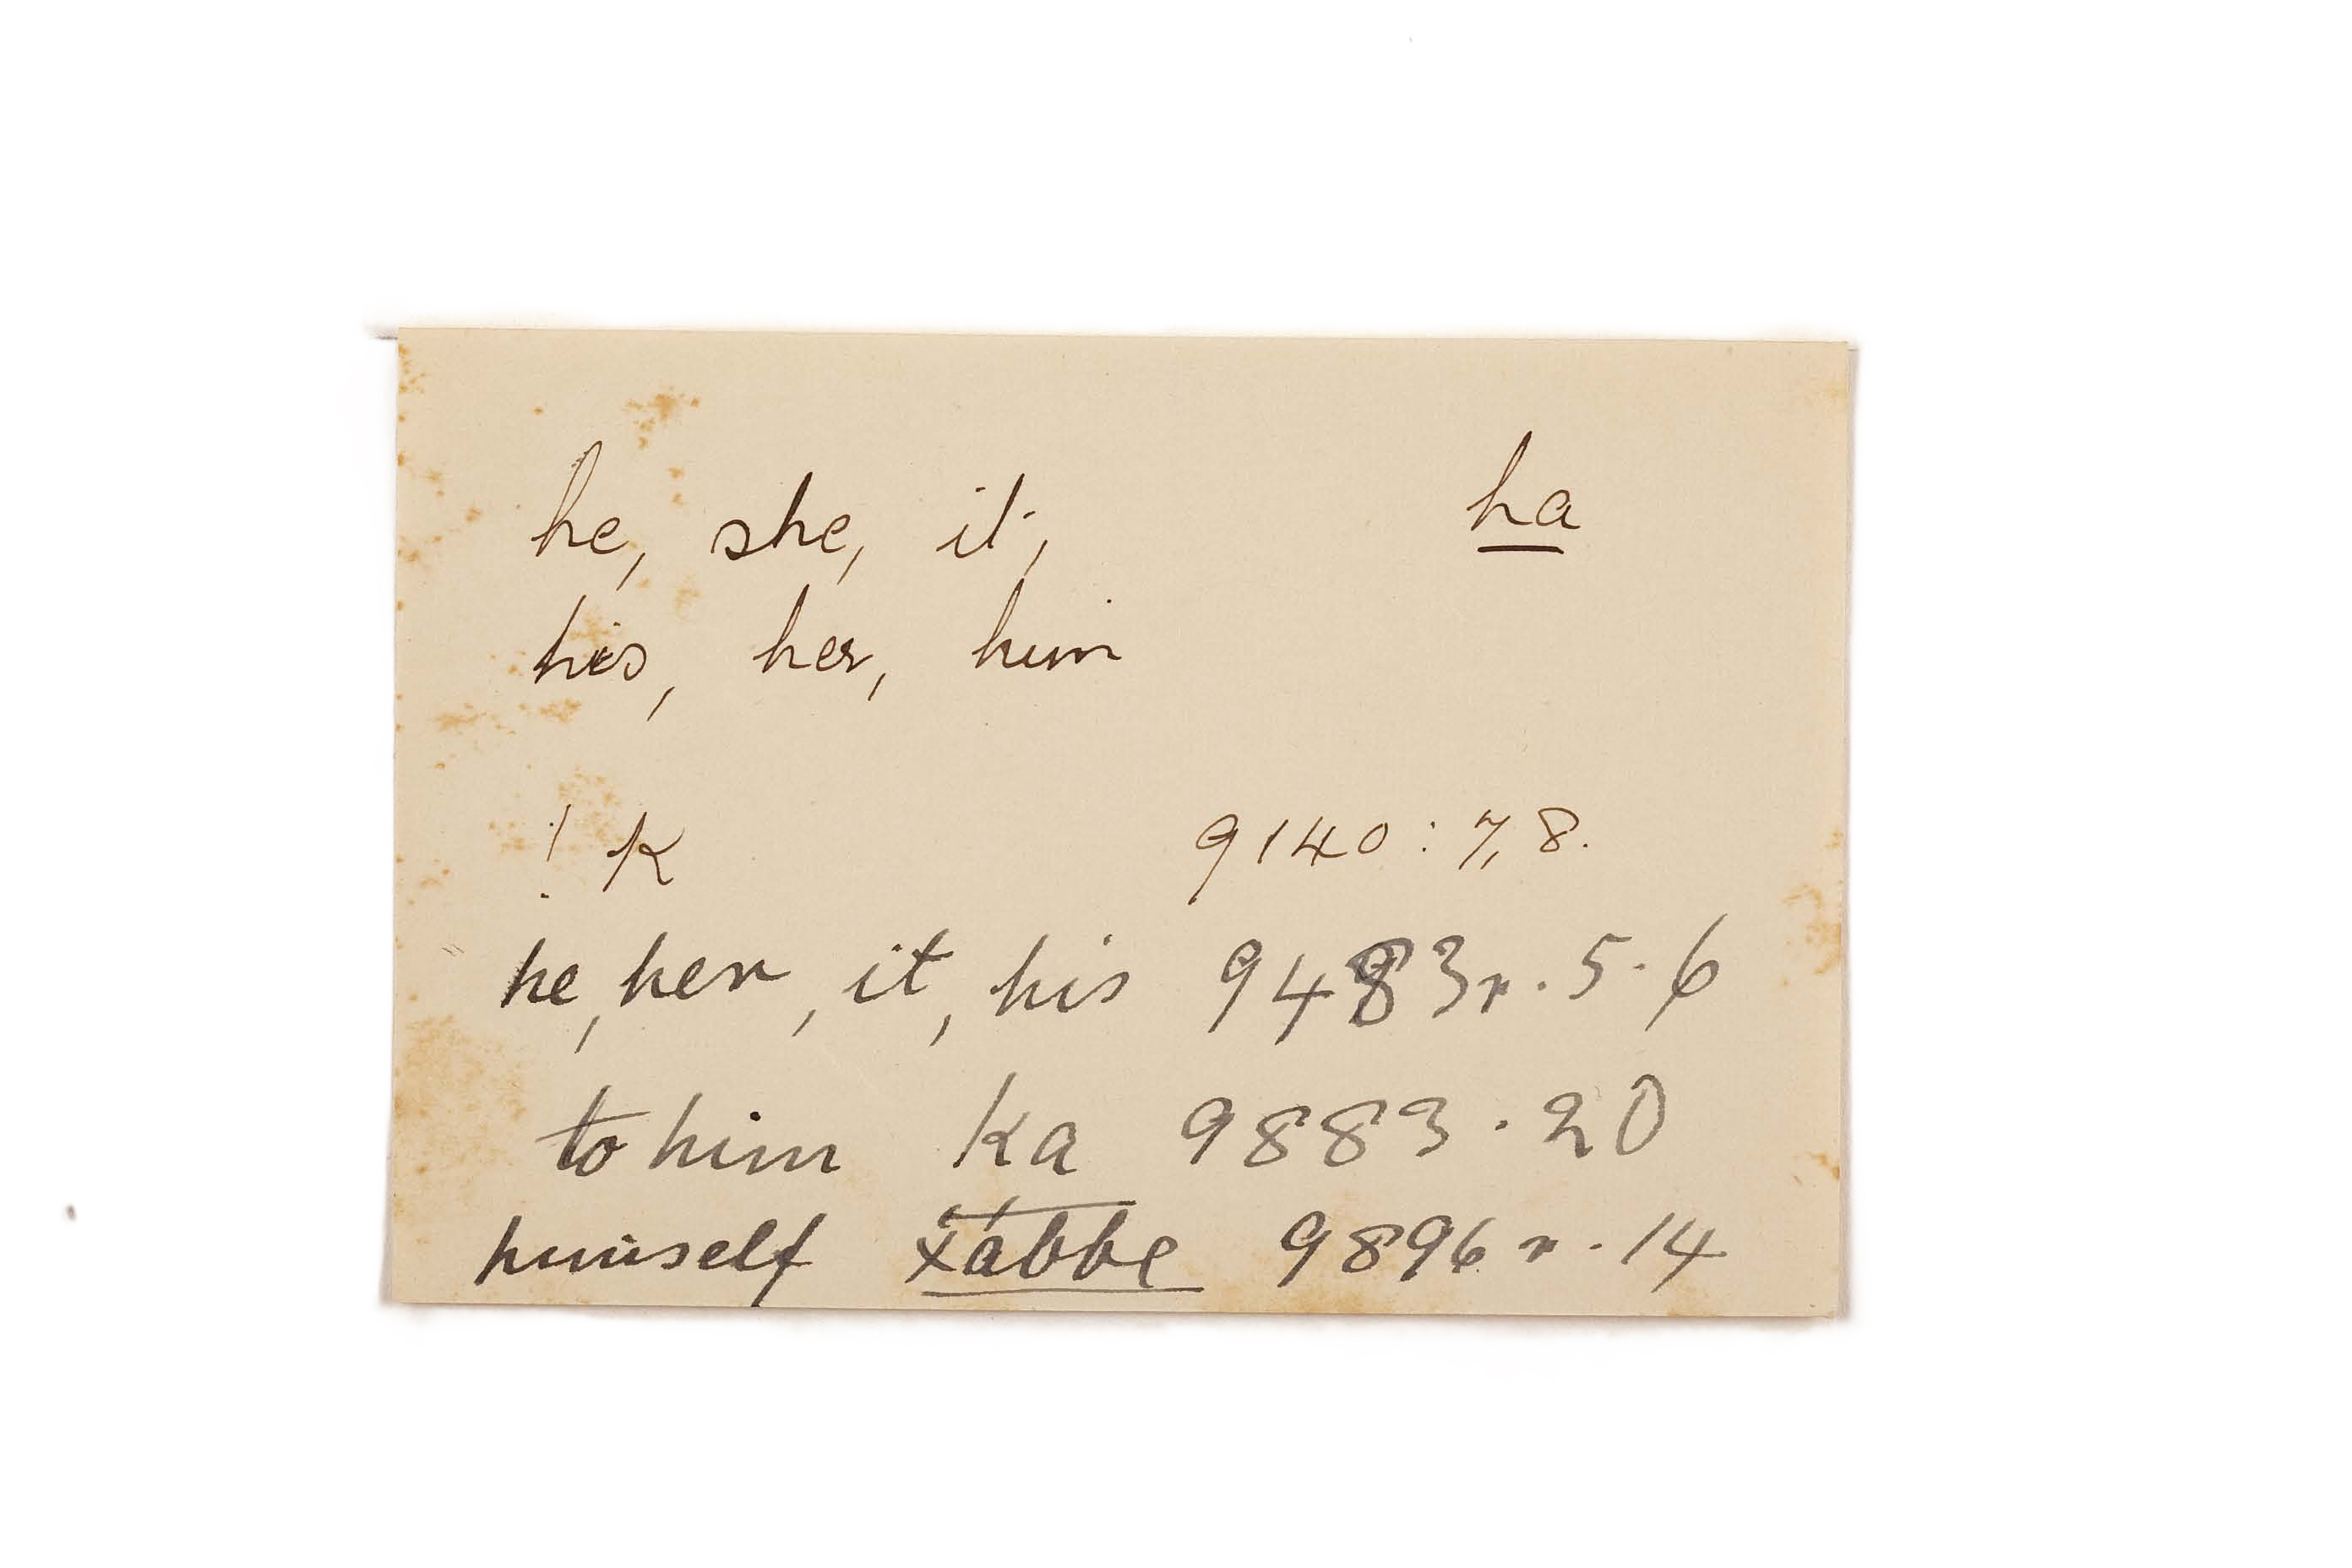 he, she, it, ha
his, her, him
! K 9140 : 7, 8.
he, her, it, his 9483r. 5. 6
to him ka 9883. 20
himself 9896r. 14